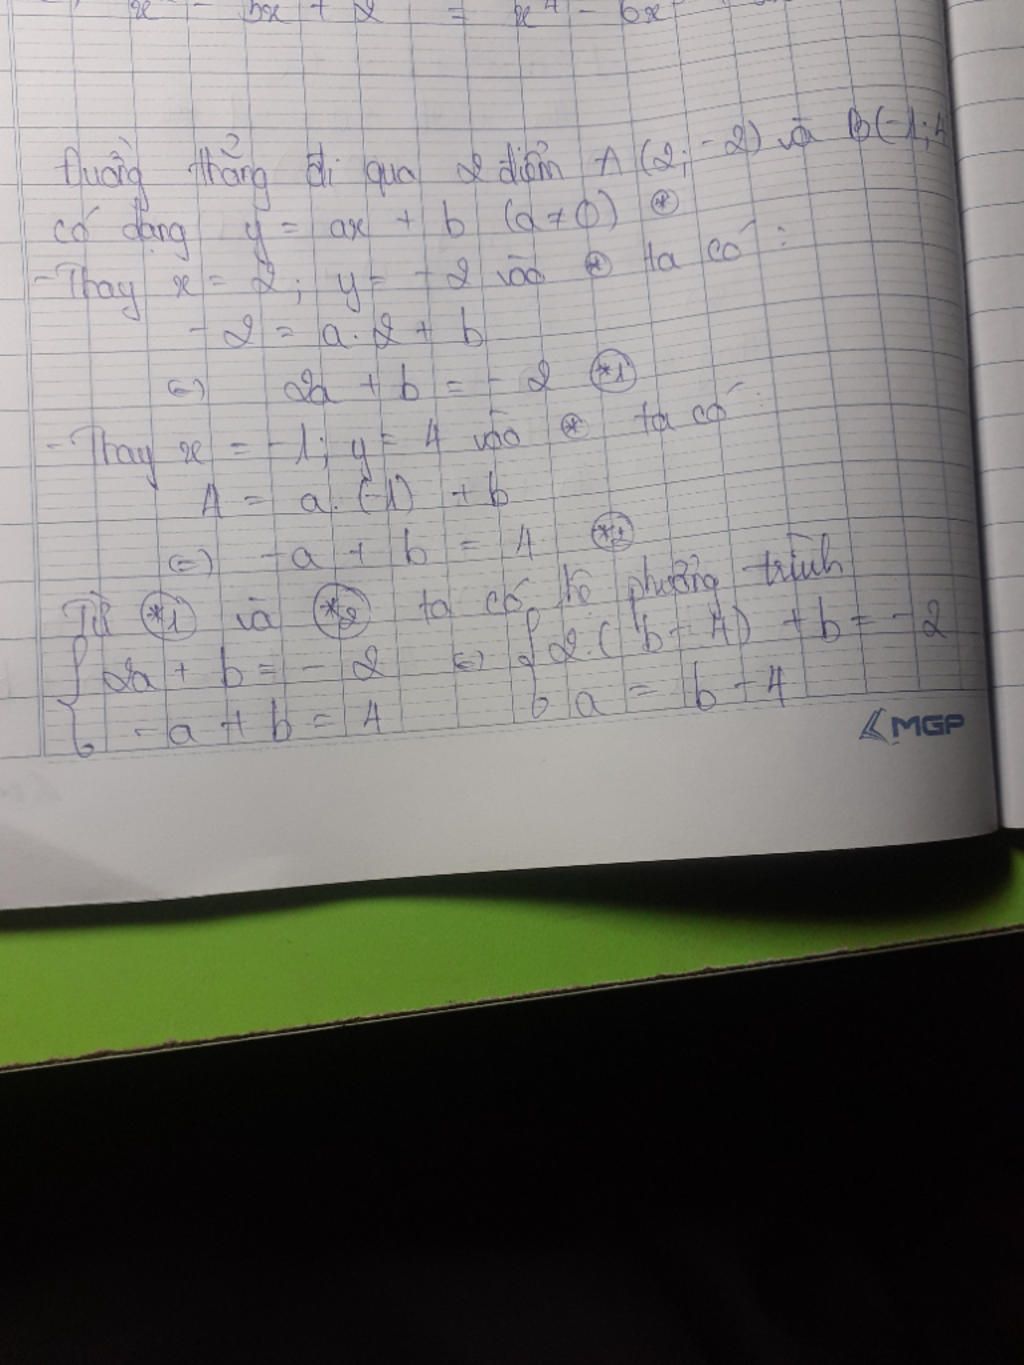 x⁴ - 5x + 2 = x⁴ - 6x
Đường thẳng đi qua 2 điểm A (2; -2) và B(-1; 4
có dạng y = ax + b (a ≠ 0) (*)
- Thay x = 2; y = -2 vào (*) ta có :
- 2 = a. 2 + b
(=) 2a + b = - 2 (*1)
- Thay x = -1; y = 4 vào (*) ta có :
4 = a. (-1) + b
(=) -a + b = 4 (*2)
Từ (*1) và (*2) ta có hệ phương trình
{ 2a + b = - 2 (=) { 2.( b - 4) + b = - 2
{ - a + b = 4 { a = b - 4
MGP